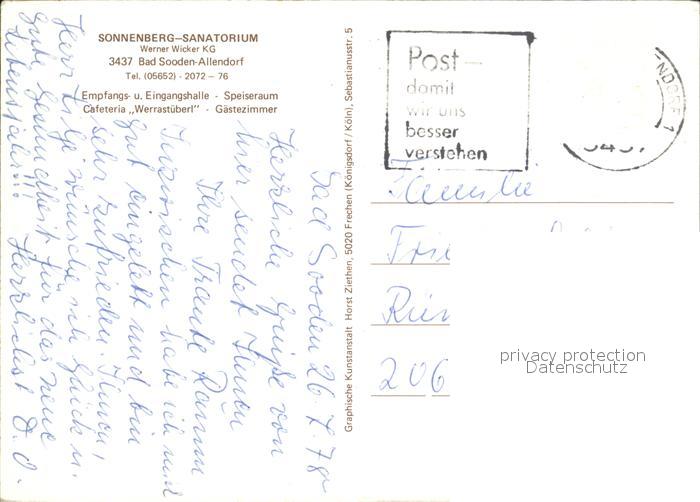 SONNENBERG—SANATORIUM
Werner Wicker KG
3437 Bad Sooden-Allendorf
Tel. (05652) - 2072 – 76
Empfangs- u. Eingangshalle · Speiseraum
Cafeteria „Werrastüberl" · Gästezimmer
Bad Sooden 26. 7. 78
Herzliche Grüße von
hier sendet Ihnen
Ihre Traute
Inzwischen habe ich mich
gut eingelebt und bin
sehr zufrieden. Ihnen,
Herr wünsche ich Glück u.
gute Gesundheit für das neue
Lebensjahr!!! Herzlichst D. O.
Graphische Kunstanstalt Horst Ziethen, 5020 Frechen (Königsdorf/Köln), Sebastianusstr. 5
Post—
damit
wir uns
besser
verstehen
NDORF 1
3437
Familie
Frie
Rüm
206
privacy protection
Datenschutz